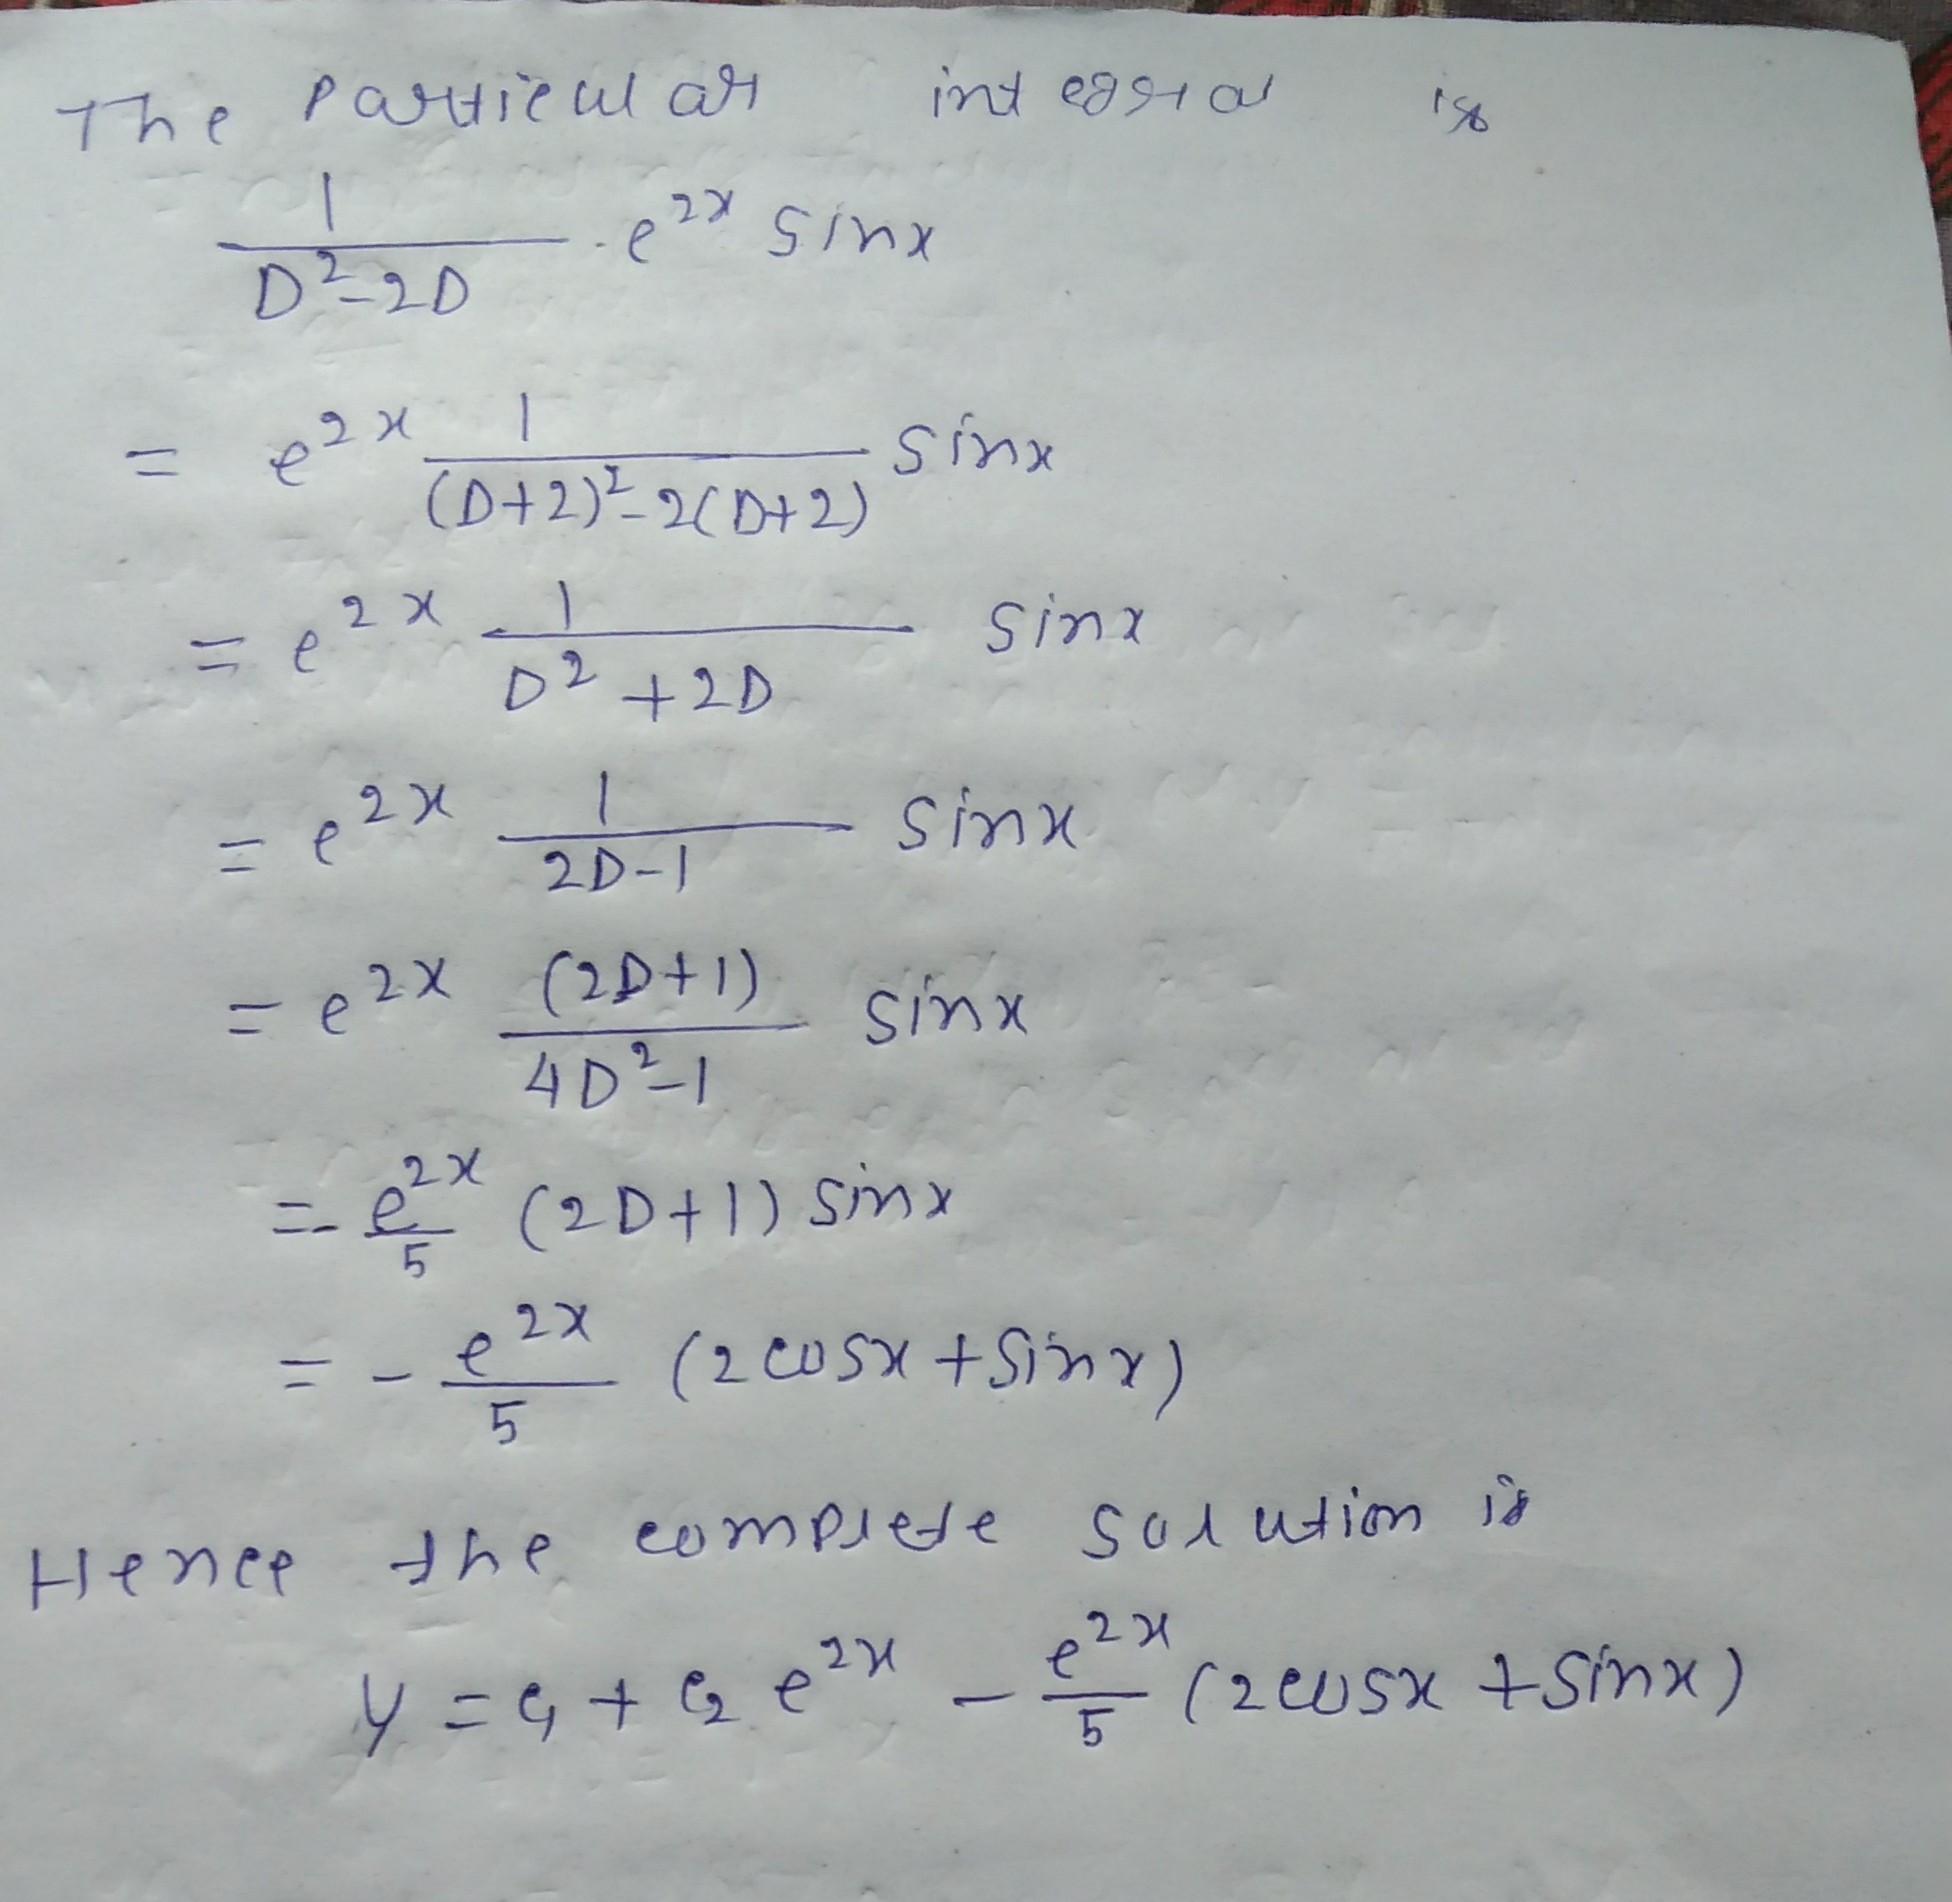 The Particular integral is
1/(D²-2D) · e^{2x} sinx
= e^{2x} 1/((D+2)²-2(D+2)) sinx
= e^{2x} 1/(D²+2D) sinx
= e^{2x} 1/(2D-1) sinx
= e^{2x} (2D+1)/(4D²-1) sinx
= -e^{2x}/5 (2D+1) sinx
= -e^{2x}/5 (2cosx+sinx)
Hence the complete solution is
y = c₁ + c₂ e^{2x} - e^{2x}/5 (2cosx+sinx)